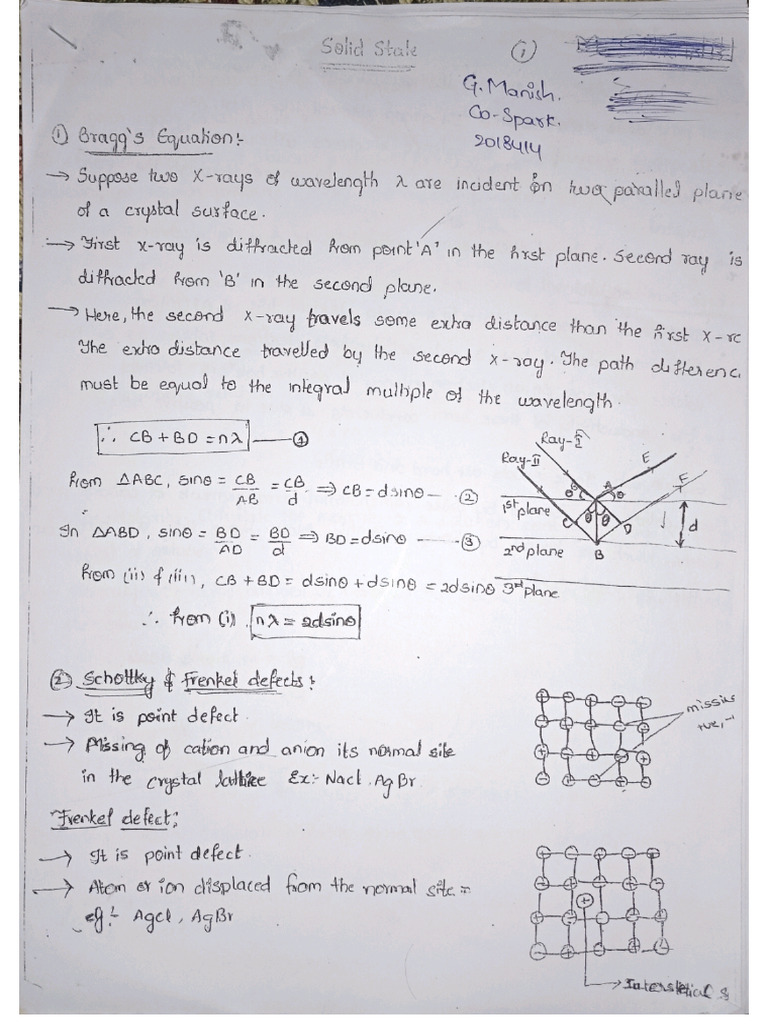 Solid State
(1)
G. Manish.
Co-Spark.
2018414
① Bragg's Equation:-
→ Suppose two X-rays of wavelength λ are incident on two parallel plane
of a crystal surface.
→ First x-ray is diffracted from point 'A' in the first plane. Second ray is
diffracted from 'B' in the second plane.
→ Here, the second x-ray travels some extra distance than the first x-
The extra distance travelled by the second x-ray. The path differenc
must be equal to the integral multiple of the wavelength.
∴ CB + BD = nλ —— ①
From △ABC, sinθ = CB/AB = CB/d ⇒ CB = dsinθ — ②
In △ABD, sinθ = BD/AD = BD/d ⇒ BD = dsinθ —— ③
From (ii) & (iii), CB + BD = dsinθ + dsinθ = 2dsinθ
∴ from (i) nλ = 2dsinθ
Ray-I
Ray-II
E
F
θ
A
θ
1st plane
C
θ
θ
D
d
2nd plane
B
3rd plane
② Schottky & Frenkel defects:
→ It is point defect
→ Missing of cation and anion its normal site
in the crystal lattice Ex:- Nacl. AgBr
missin
+ve, -
Frenkel defect:
→ It is point defect.
→ Atom or ion displaced from the normal site =
eg:- Agcl, AgBr
Interstetial s